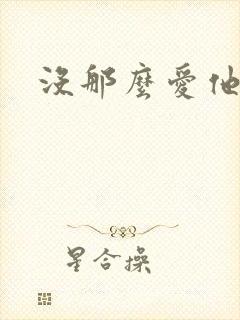 沒那麼愛他
星合操